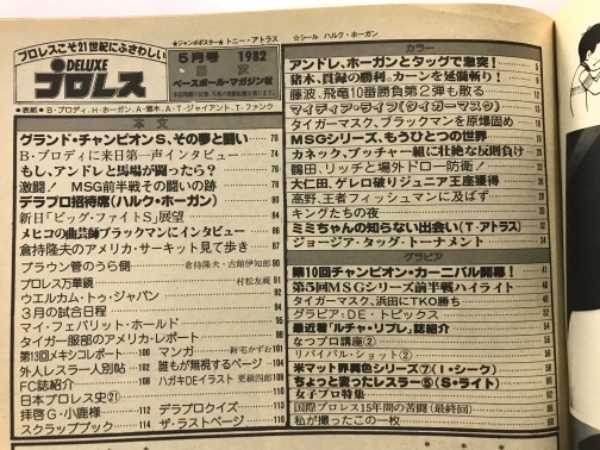 ★ジャンボポスター★ トニー・アトラス
☆シール ハルク・ホーガン
プロレスこそ21世紀にふさわしい
DELUXE
プロレス
5月号 1982
目次
ベースボール・マガジン社
●表紙●B・ブロディ、H・ホーガン、A・猪木、A・T・ジャイアント、T・ファンク
本文
グランド・チャンピオンS、その夢と闘い 70
B・ブロディに来日第一声インタビュー 74
もし、アンドレと馬場が闘ったら? 76
激闘! MSG前半戦その闘いの跡 78
デラプロ招待席(ハルク・ホーガン) 80
新日「ビッグ・ファイトS」展望 84
メヒコの曲芸師ブラックマンにインタビュー 86
倉持隆夫のアメリカ・サーキット見て歩き 87
ブラウン管のうら側 倉持隆夫・古舘伊知郎 90
プロレス万華鏡 村松友視 91
ウエルカム・トゥ・ジャパン 92
3月の試合日程 94
マイ・フェバリット・ホールド
タイガー服部のアメリカ・レポート 98
第13回メキシコレポート 100
外人レスラー人別帖 102
FC誌紹介 108
日本プロレス史㉑ 110
拝啓G・小鹿様 112
スクラップブック 114
マンガ 新宅かずお 101
誰もが無視するページ 104
ハガキDEイラスト 更級四郎 109
デラプロクイズ 113
ザ・ラストページ 116
カラー
アンドレ、ホーガンとタッグで激突! 5
猪木、貫録の勝利。カーンを延髄斬り! 9
藤波、飛竜10番勝負第2弾も散る
マイティア・ライフ(タイガーマスク)
タイガーマスク、ブラックマンを原爆固め
MSGシリーズ、もうひとつの世界
カネック、ブッチャー組に壮絶な反則負け 25
鶴田、リッチと場外ドロー防衛!
大仁田、ゲレロ破りジュニア王座獲得
高野、王者フィッシュマンに及ばず
キングたちの夜
ミミちゃんの知らない出会い(T・アトラス)
ジョージア・タッグ・トーナメント 34
グラビア
第10回チャンピオン・カーニバル開幕! 41
第5回MSGシリーズ前半戦ハイライト
タイガーマスク、浜田にTKO勝ち
グラビア:DE・トピックス
最近着「ルチャ・リブレ」誌紹介 54
なつプロ講座②
リバイバル・ショット②
米マット界異色シリーズ⑦(I・シーク)
ちょっと変ったレスラー⑤(S・ライト)
女子プロ特集
国際プロレス15年間の苦闘(最終回)
私が撮ったこの一枚 68